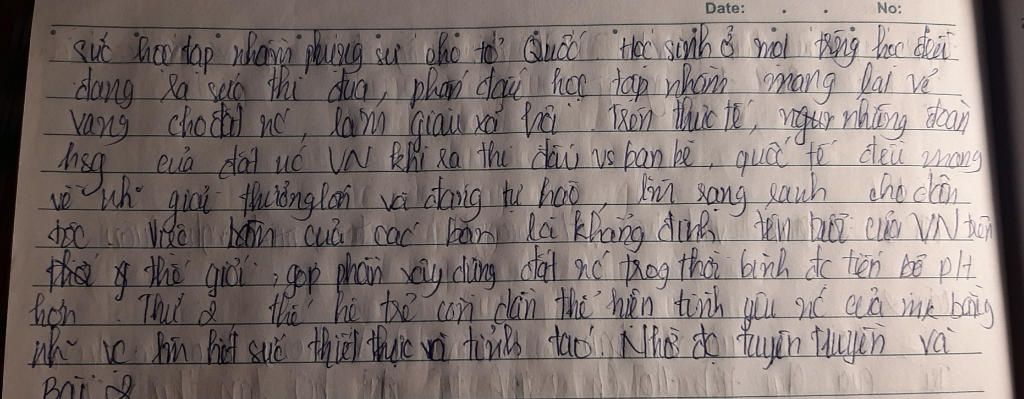 Date: . . No:
sức học tập nhằm phụng sự cho tổ Quốc. Học sinh ở mọi trường học đều
đang ra sức thi đua, phấn đấu học tập nhằm mang lại vẻ
vang cho đất nc, làm giàu xã hội. Trên thực tế, những đoàn
hsg của đất nc VN khi ra thi đấu vs bạn bè, quốc tế đều mang
về nh giải thưởng lớn và đáng tự hào, làm rạng danh cho dân
tộc. Việc làm của các bạn là khẳng định tên tuổi của VN trên
thế giới, góp phần xây dựng đất nc trog thời bình đc tiến bộ pt
hơn. Thứ 2 thế hệ trẻ còn dần thể hiện tình yêu nc của mk bằng
nh vc làm hết sức thiết thực và tỉnh táo. Nhờ đc tuyên truyền và
Bài 2